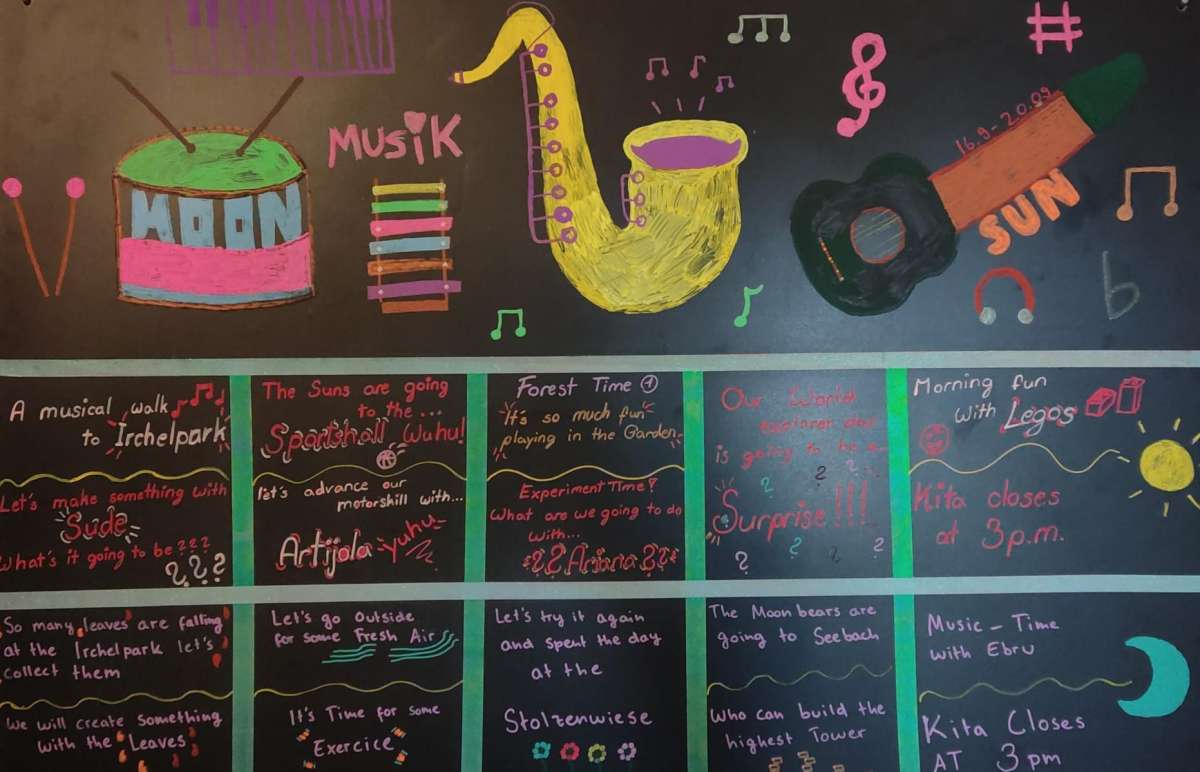 MUSiK
MOON
16.9 - 20.09
SUN
A musical walk
to Irchelpark
Let's make something with
Sude
What's it going to be ???
???
The Suns are going
to the...
Sportshall Wuhu!
let's advance our
motorskill with...
Artijola yuhu
Forest Time
It's so much fun
playing in the Garden
Experiment Time!
What are we going to do
with...
?? Ariana ??
Our World
day
is going to be a
Surprise!!!
Morning fun
with Legos
Kita closes
at 3p.m.
So many leaves are falling
at the Irchelpark let's
collect them
We will create something
with the Leaves
Let's go outside
for some Fresh Air
It's Time for some
Exercice
Let's try it again
and spent the day
at the
Stolzenwiese
The Moon bears are
going to Seebach
Who can build the
highest Tower
Music - Time
with Ebru
Kita Closes
AT 3 pm